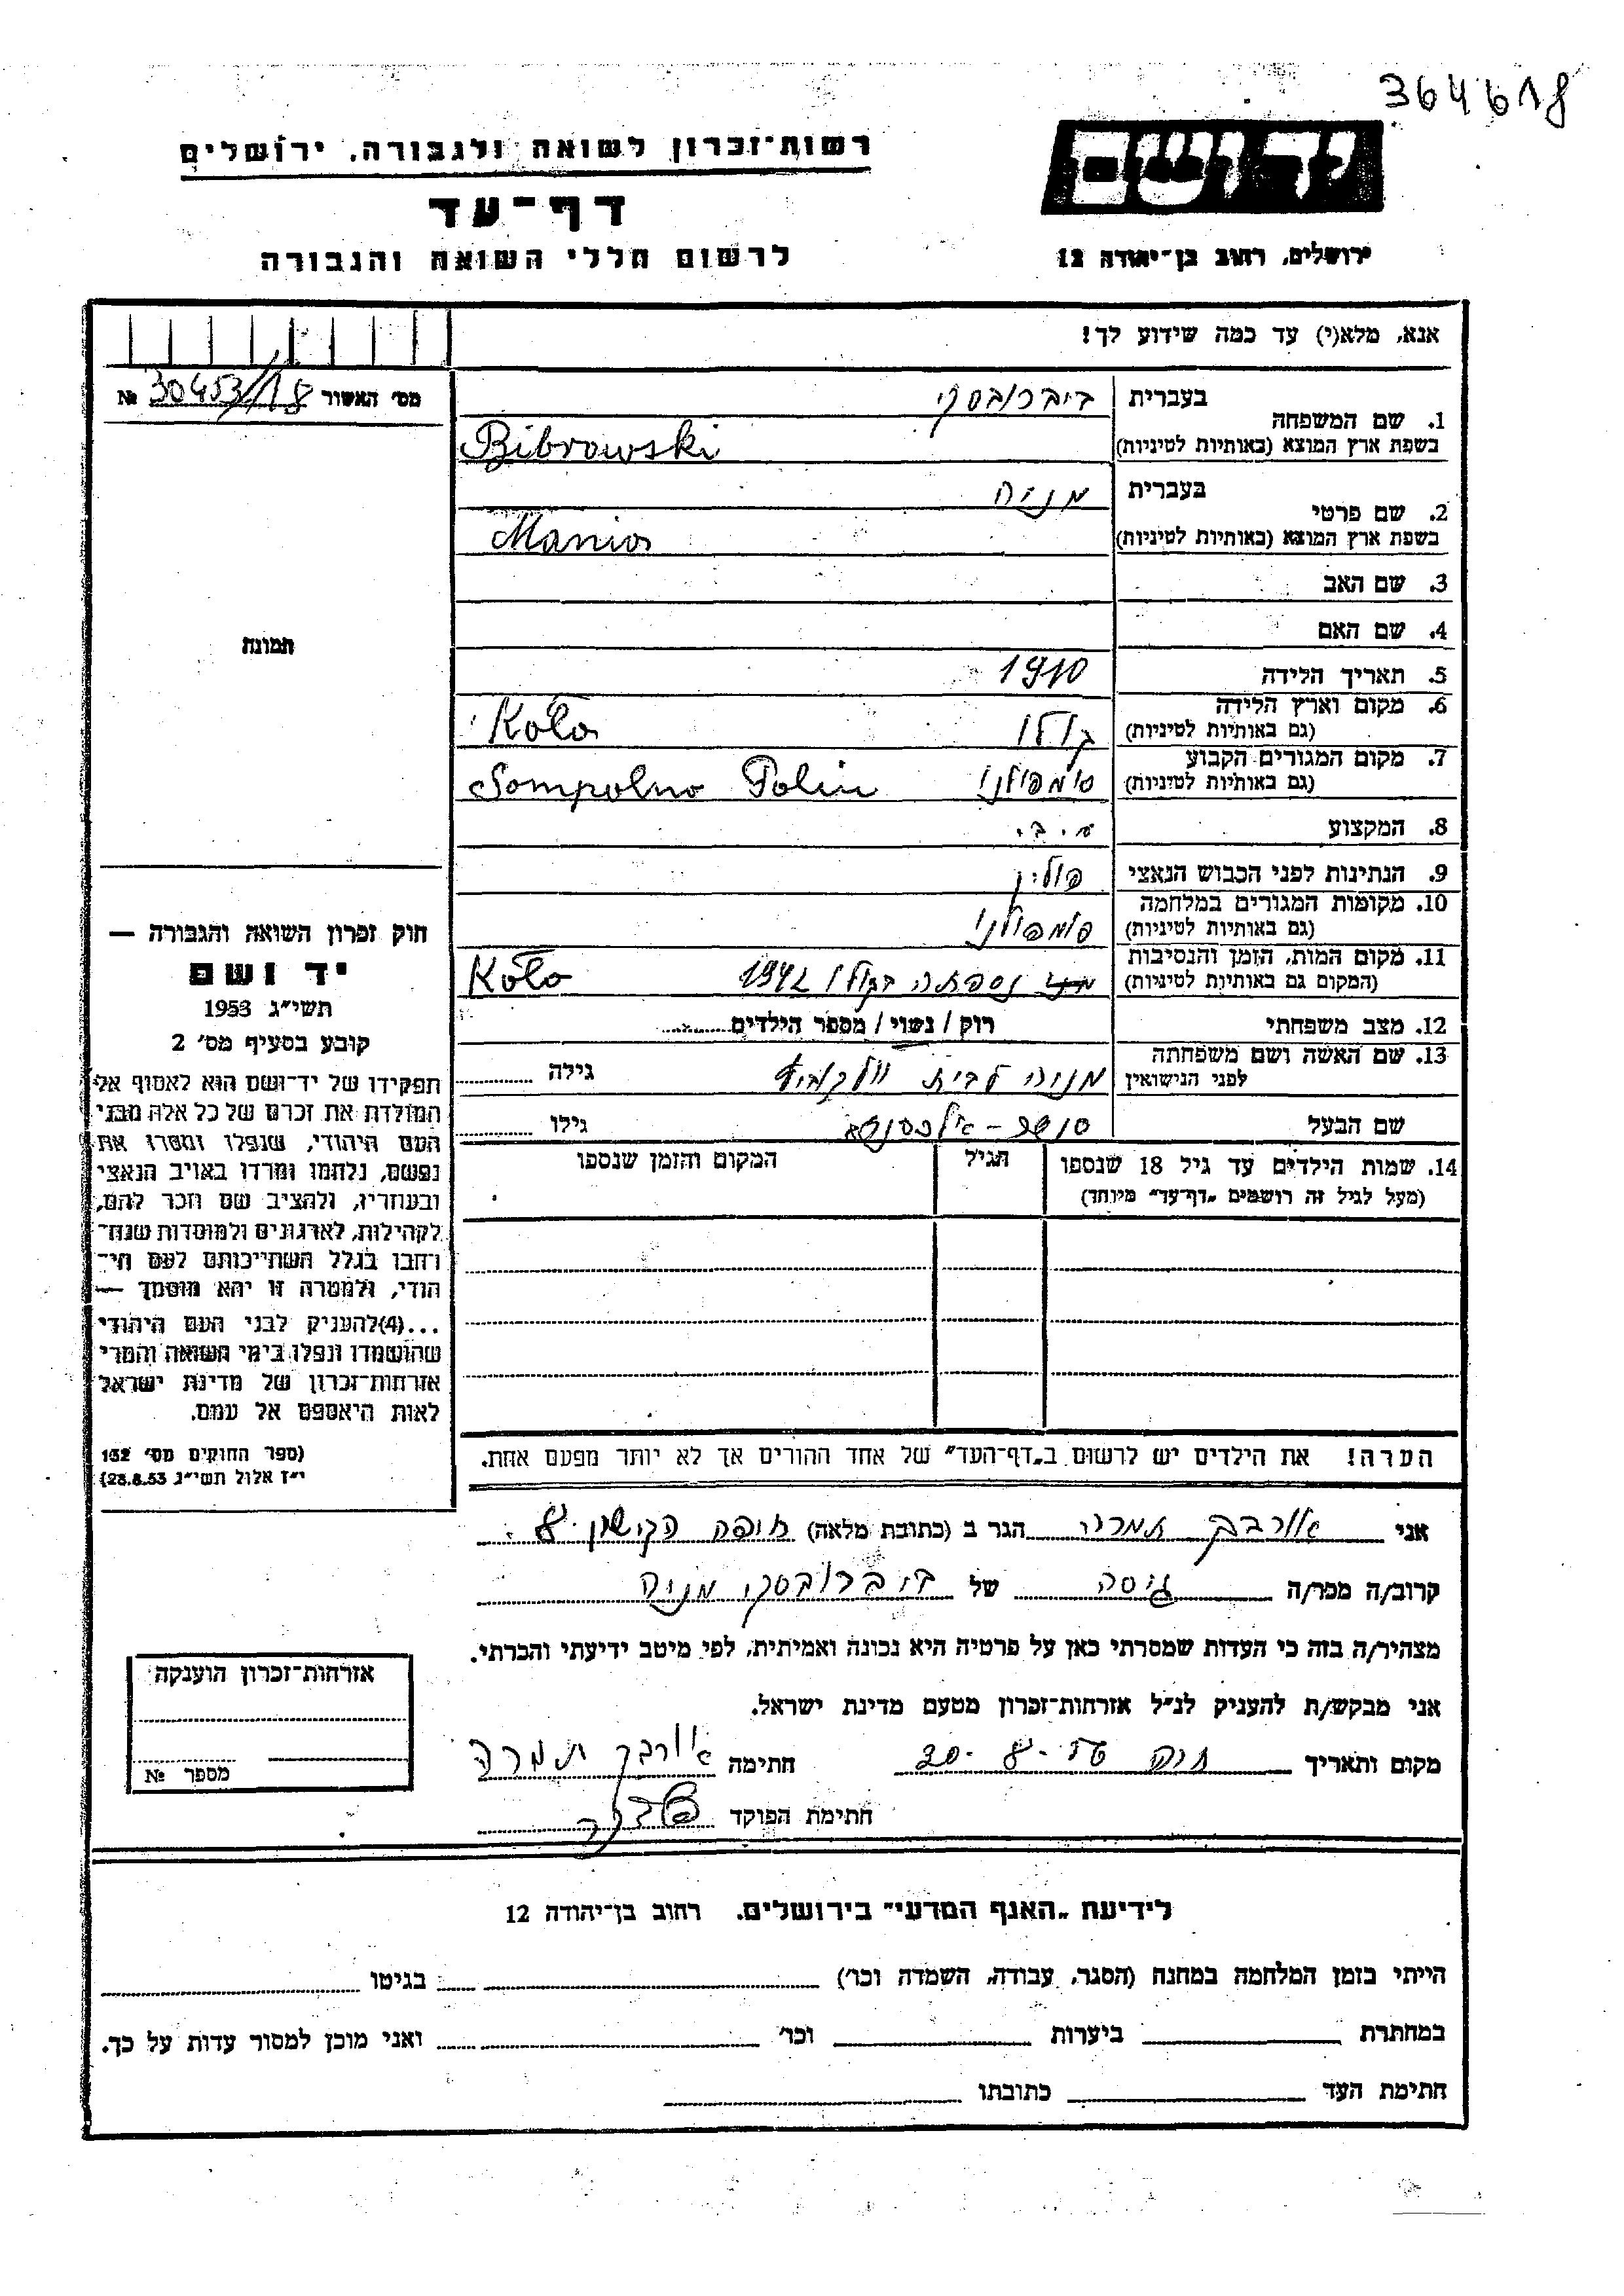 364618
רשות־זכרון לשואה ולגבורה, ירושלים
דף־עד
לרשום חללי השואה והגבורה
יד ושם
ירושלים, רחוב בן־יהודה 12
אנא, מלא(י) עד כמה שידוע לך!
מס׳ האשור № 30453/18
1. שם המשפחה
בעברית ביברובסקי
בשפת ארץ המוצא (באותיות לטיניות) Bibrowski
2. שם פרטי
בעברית מניה
בשפת ארץ המוצא (באותיות לטיניות) Mania
3. שם האב
4. שם האם
5. תאריך הלידה 1910
6. מקום וארץ הלידה
(גם באותיות לטיניות) קולו Koło
7. מקום המגורים הקבוע
(גם באותיות לטיניות) סומפולנו Sompolno Polin
8. המקצוע
9. הנתינות לפני הכבוש הנאצי פולין
10. מקומות המגורים במלחמה
(גם באותיות לטיניות) סומפולנו
11. מקום המות, הזמן והנסיבות
(המקום גם באותיות לטיניות) נספתה בקולו 1942 Koło
12. מצב משפחתי רוק / נשוי / מספר הילדים
13. שם האשה ושם משפחתה
לפני הנישואין מניה לבית גילה
שם הבעל גילו
14. שמות הילדים עד גיל 18 שנספו
(מעל לגיל זה רושמים „דף־עד״ מיוחד)
הגיל
המקום והזמן שנספו
תמונה
חוק זכרון השואה והגבורה —
יד ושם
תשי״ג 1953
קובע בסעיף מס׳ 2
תפקידו של יד־ושם הוא לאסוף אל
המולדת את זכרם של כל אלה מבני
העם היהודי, שנפלו ומסרו את
נפשם, נלחמו ומרדו באויב הנאצי
ובעוזריו, ולהציב שם וזכר להם,
לקהילות, לארגונים ולמוסדות שנח־
רבו בגלל השתייכותם לעם הי־
הודי, ולמטרה זו יהא מוסמך —
...(4) להעניק לבני העם היהודי
שהושמדו ונפלו בימי השואה והמרי
אזרחות־זכרון של מדינת ישראל
לאות היאספם אל עמם.
(ספר החוקים מס׳ 132
י״ז אלול תשי״ג 28.8.53)
הערה! את הילדים יש לרשום ב„דף־העד״ של אחד ההורים אך לא יותר מפעם אחת.
אני אורבך תמרה הגר ב (כתובת מלאה) חיפה הקישון 8
קרוב/ה מכר/ה גיסה של ביברובסקי מניה
מצהיר/ה בזה כי העדות שמסרתי כאן על פרטיה היא נכונה ואמיתית, לפי מיטב ידיעתי והכרתי.
אני מבקש/ת להעניק לנ״ל אזרחות־זכרון מטעם מדינת ישראל.
מקום ותאריך חתימה אורבך תמרה
חתימת הפוקד
אזרחות־זכרון הוענקה
מספר №
לידיעת „האגף המדעי״ בירושלים, רחוב בן־יהודה 12
הייתי בזמן המלחמה במחנה (הסגר, עבודה, השמדה וכו׳) בגיטו
במחתרת ביערות וכו׳ ואני מוכן למסור עדות על כך.
חתימת העד כתובתו